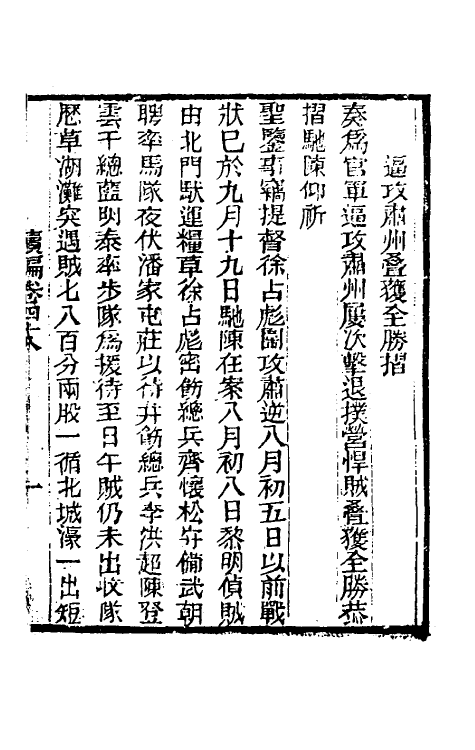 逼攻肅州疊獲全勝摺
奏爲官軍逼攻肅州屢次擊退撲營悍賊疊獲全勝恭
摺馳陳仰祈
聖鑒事竊提督徐占彪圍攻肅逆八月初五日以前戰
狀已於九月十九日馳陳在案八月初八日黎明偵賊
由北門馱運糧草徐占彪密飭總兵齊懷松守備武朝
聘率馬隊夜伏潘家屯莊以待并飭總兵李洪超陳登
雲千總藍明泰率步隊爲援待至日午賊仍未出收隊
歷草湖灘突遇賊七八百分兩股一循北城濠一出短
續編卷四十八 一